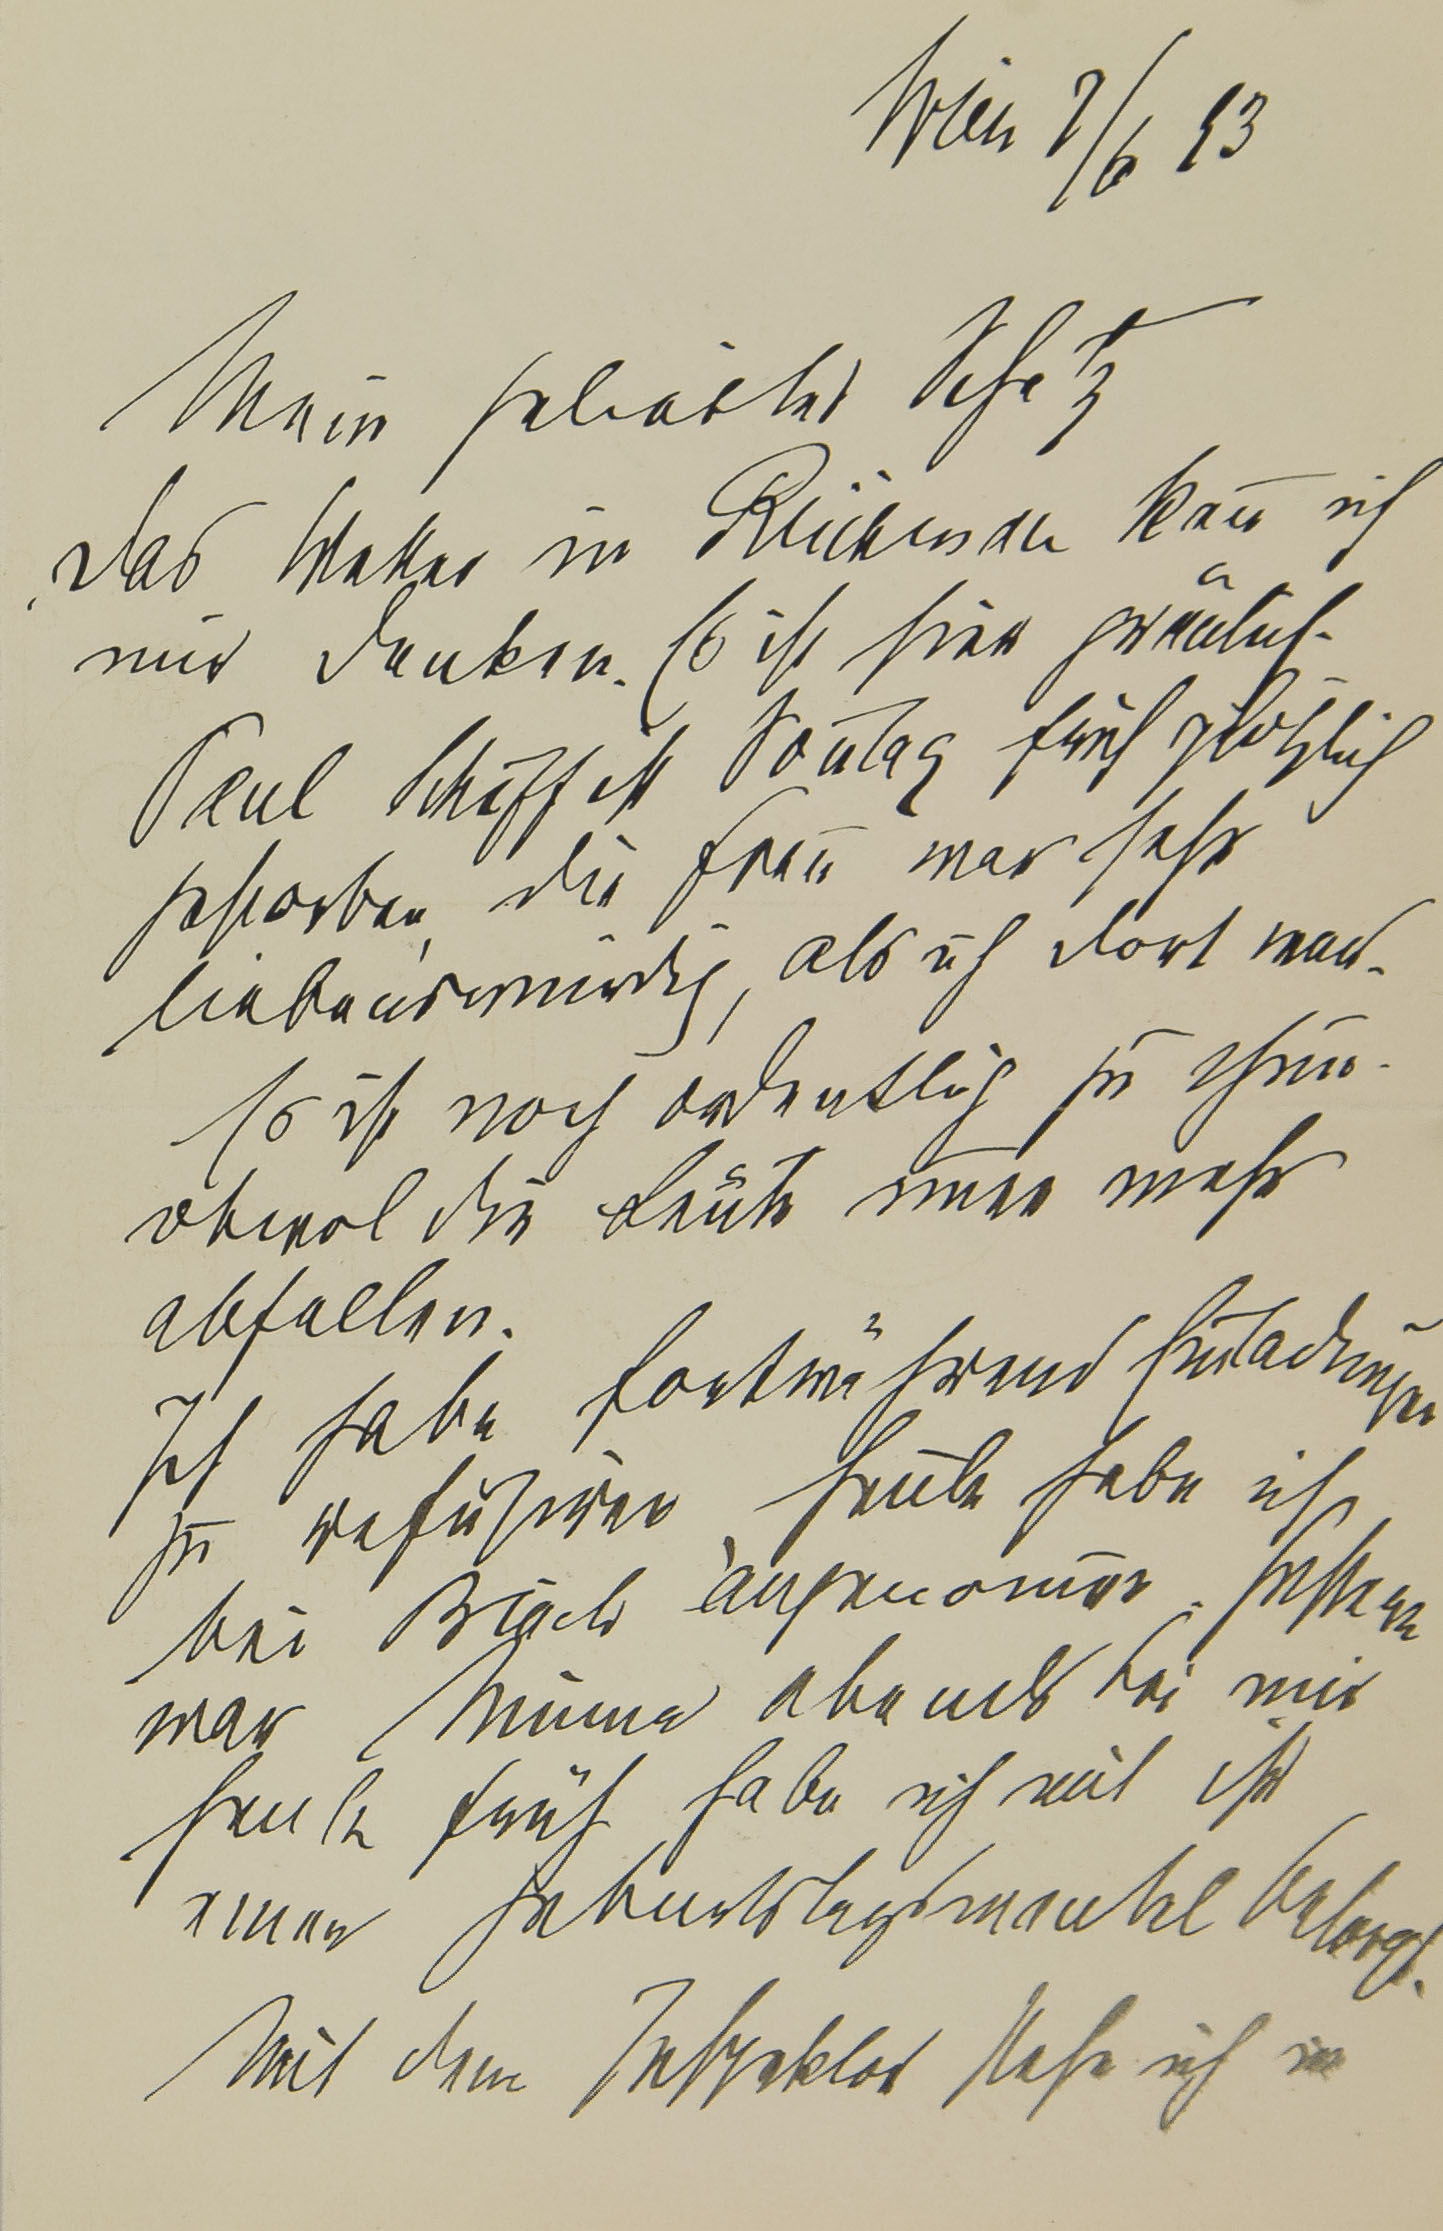 Wien 7/6 93
Mein geliebter Schatz
Das Wetter in Reichenau kan̄ ich
mir denken. Es ist hier gräulich.
Paul Schiff ist Son̄tag früh plötzlich
gestorben, die Frau war sehr
liebenswürdig, als ich dort war.
Es ist noch ordentlich zu thun.
obwol die Leute im̄er mehr
abfallen.
Ich habe fortwährend Einladungen
zu refüsiren, heute habe ich
bei angenom̄en. Gestern
war Minna abends bei mir
heute früh habe ich mit ihr
einen Geburtstagsmantel besorgt.
Mit dem Inspektor stehe ich in